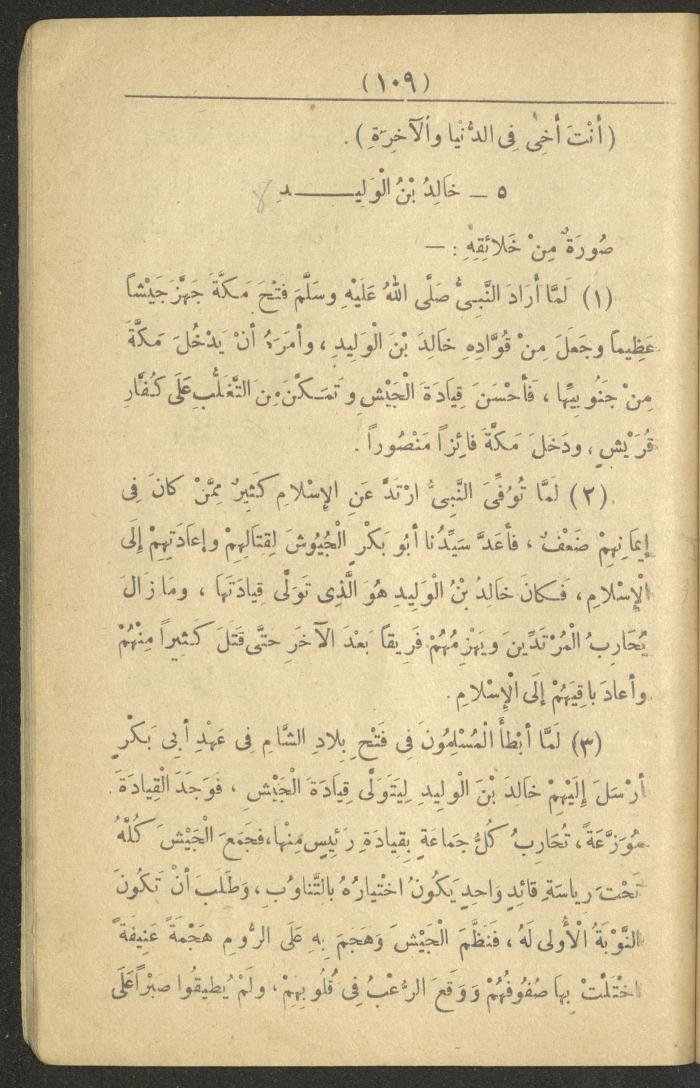 (١٠٩)
(أَنْتَ أَخِى فِى الدُّنْيا والْآخِرَةِ).
٥ ــ خَالِدُ بْنُ الْوَلِيــــــدِ
صُورَةٌ مِنْ خَلائِقِهِ : ــ
(١) لَمَّا أَرَادَ النَّبِىُّ صَلَّى اللهُ عَلَيْهِ وسَلَّمَ فَتْحَ مَكَّةَ جَهَّزَ جَيْشاً
عَظِيماً وجَعَلَ مِنْ قُوَّادِهِ خَالِدَ بْنَ الْوَلِيدِ ، وأمَرَهُ أنْ يَدْخُلَ مَكَّةَ
مِنْ جَنُوبِيِّها ، فَأَحْسَنَ قِيَادَةَ الْجَيْشِ وتَمَكَّنَ مِنَ التَّغَلُّبِ عَلَى كُفَّارِ
قُرَيْشٍ ، ودَخَلَ مَكَّةَ فائِزاً مَنْصُوراً .
(٢) لَمَّا تُوُفِّىَ النَّبِىُّ ارْتَدَّ عَنِ الإِسْلامِ كَثِيرٌ مِمَّنْ كانَ فِى
إِيمَانِهِمْ ضَعْفٌ ، فأعَدَّ سَيِّدُنا أبُو بَكْرٍ الْجُيُوشَ لِقِتَالِهِمْ وإعَادَتِهِمْ إلَى
الْإِسْلامِ ، فَكانَ خَالِدُ بْنُ الْوَلِيدِ هُوَ الَّذِى تَوَلَّى قِيادَتَهَا ، ومَا زَالَ
يُحَارِبُ الْمُرْتَدِّينَ ويَهْزِمُهُمْ فَرِيقاً بَعْدَ الآخَرِ حتَّى قَتَلَ كَثِيراً مِنْهُمْ
وأعادَ باقِيَهُمْ إلَى الْإِسْلامِ .
(٣) لَمَّا أبْطَأَ الْمُسْلِمُونَ فِى فَتْحِ بِلادِ الشَّامِ فِى عَهْدِ أبِى بَكْرٍ
أرْسَلَ إلَيْهِمْ خَالِدَ بْنَ الْوَلِيدِ لِيَتَوَلَّى قِيَادَةَ الْجَيْشِ ، فَوَجَدَ الْقِيَادَةَ
مُوَزَّعَةً ، تُحَارِبُ كُلُّ جَمَاعَةٍ بِقِيَادَةِ رَئِيسٍ مِنْهَا، فَجَمَعَ الْجَيْشَ كُلَّهُ
تَحْتَ رِياسَةِ قائِدٍ واحِدٍ يَكُونُ اخْتِيارُهُ بالتَّناوُبِ، وَطَلَبَ أنْ تَكُونَ
النَّوْبَةُ الْأُولى لَهُ ، فَنَظَّمَ الْجَيْشَ وَهَجَمَ بِهِ عَلَى الرُّومِ هَجْمَةً عَنِيفَةً
اخْتَلَّتْ بِهَا صُفُوفُهُمْ وَوَقَعَ الرُّعْبُ فِى قُلُوبِهِمْ، ولَمْ يُطِيقُوا صَبْراً عَلَى